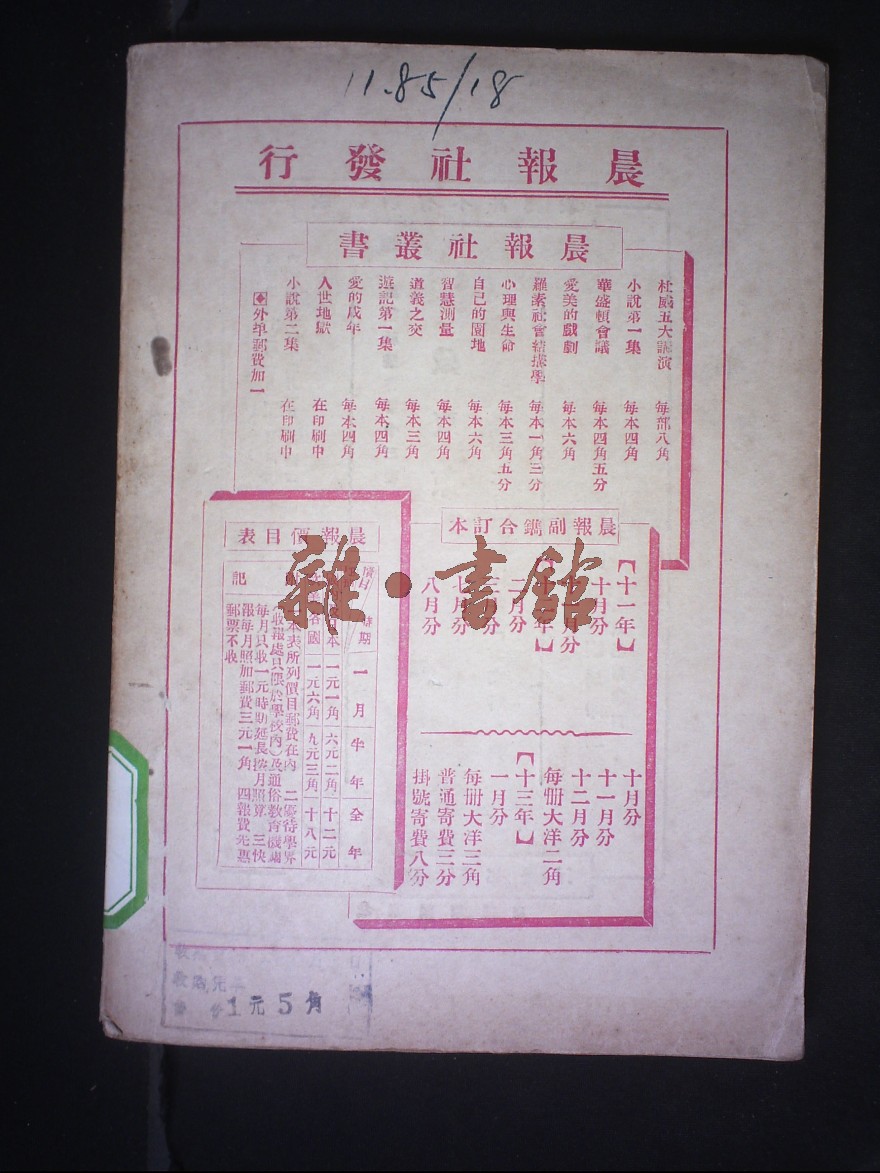 11.85/18
晨報社發行
晨報社叢書
杜威五大講演 每部八角
小說第一集 每本四角
華盛頓會議 每本四角五分
愛美的戲劇 每本六角
羅素社會結構學 每本一角三分
心理與生命 每本三角五分
自己的園地 每本六角
智慧測量 每本四角
道義之交 每本三角
遊記第一集 每本四角
愛的成年 每本四角
人世地獄 在印刷中
小說第二集 在印刷中
外埠郵費加一
晨報副鐫合訂本
【十一年】
十月分
十一月分
二月分
三月分
七月分
八月分
十月分
十一月分
十二月分
每冊大洋二角
【十三年】
一月分
每冊大洋三角
普通寄費三分
掛號寄費八分
晨報價目表
一月 半年 全年
日本 一元一角 六元二角 十二元
各國 一元六角 九元三角 十八元
記
本表所列價目郵費在內 二優待學界
(收報處只限於學校內)及通俗教育機關
每月只收一元時助延長按月照算 三快
報每月照加郵費三元一角 四報費先惠
郵票不收
雜·書館
1元5角